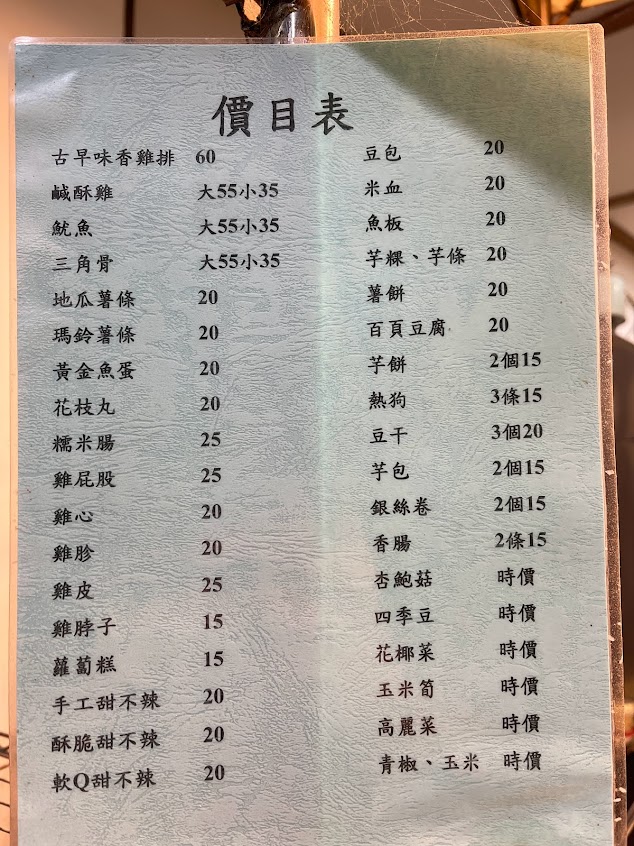 價目表
古早味香雞排 60
鹹酥雞 大55小35
魷魚 大55小35
三角骨 大55小35
地瓜薯條 20
瑪鈴薯條 20
黃金魚蛋 20
花枝丸 20
糯米腸 25
雞屁股 25
雞心 20
雞胗 20
雞皮 25
雞脖子 15
蘿蔔糕 15
手工甜不辣 20
酥脆甜不辣 20
軟Q甜不辣 20
豆包 20
米血 20
魚板 20
芋粿、芋條 20
薯餅 20
百頁豆腐 20
芋餅 2個15
熱狗 3條15
豆干 3個20
芋包 2個15
銀絲卷 2個15
香腸 2條15
杏鮑菇 時價
四季豆 時價
花椰菜 時價
玉米筍 時價
高麗菜 時價
青椒、玉米 時價